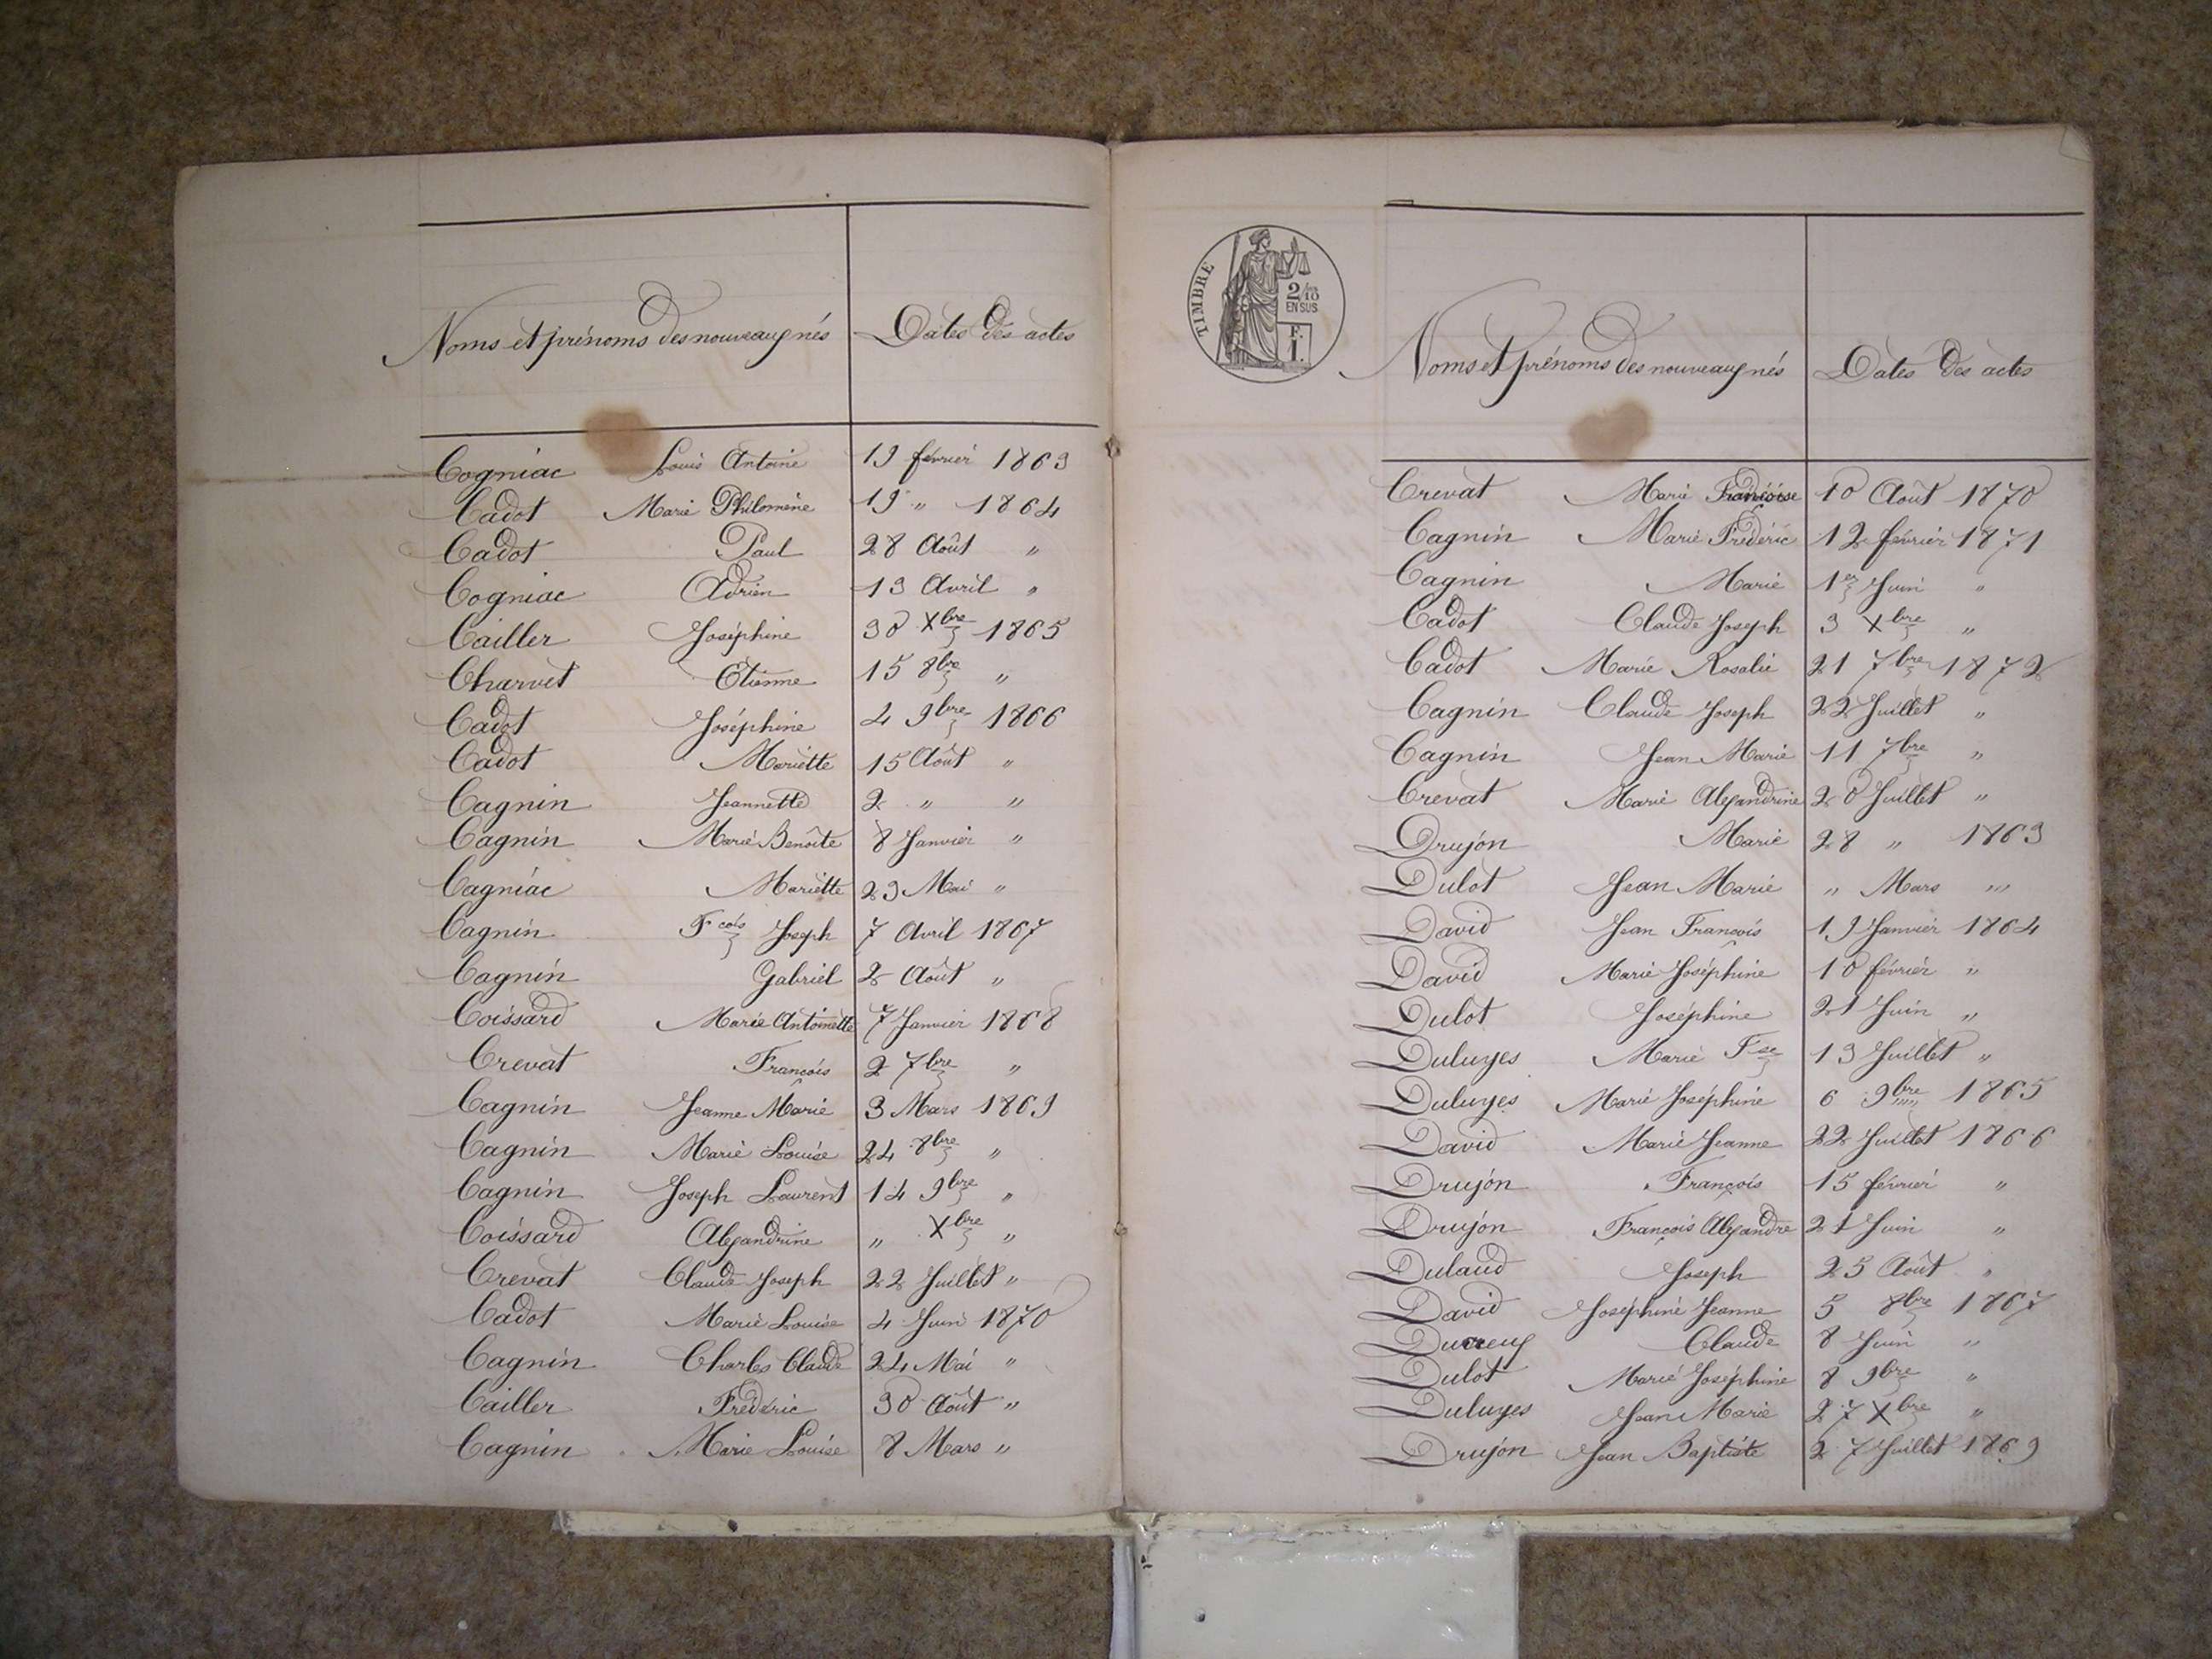 Noms et prénoms des nouveaux nés Dates des actes
Cogniac Louis Antoine 19 février 1863
Cadot Marie Philomène 19 " 1864
Cadot Paul 28 Août "
Cogniac Adrien 13 Avril "
Cailler Joséphine 30 Xbre 1865
Charvet Etienne 15 8bre "
Cadot Joséphine 4 9bre 1866
Cadot Mariette 15 Août "
Cagnin Jeannette 2 " "
Cagnin Marie Benoîte 8 Janvier "
Cagniac Mariette 23 Mai "
Cagnin Fcois Joseph 7 Avril 1867
Cagnin Gabriel 2 Août "
Coissard Marie Antoinette 7 Janvier 1868
Crevat François 2 7bre "
Cagnin Jeanne Marie 3 Mars 1869
Cagnin Marie Louise 24 8bre "
Cagnin Joseph Laurent 14 9bre "
Coissard Alexandrine " Xbre "
Crevat Claude Joseph 22 Juillet "
Cadot Marie Louise 4 Juin 1870
Cagnin Charles Claude 24 Mai "
Cailler Frédéric 30 Août "
Cagnin Marie Louise 8 Mars "
TIMBRE
2/10
EN SUS
F.
1.
Noms et prénoms des nouveaux nés Dates des actes
Crevat Marie Françoise 10 Août 1870
Cagnin Marie Frédéric 12 février 1871
Cagnin Marie 1er Juin "
Cadot Claude Joseph 3 Xbre "
Cadot Marie Rosalie 21 7bre 1872
Cagnin Claude Joseph 22 Juillet "
Cagnin Jean Marie 11 7bre "
Crevat Marie Alexandrine 20 Juillet "
Drujon Marie 28 " 1863
Dulot Jean Marie " Mars "
David Jean François 19 Janvier 1864
David Marie Joséphine 10 février "
Dulot Joséphine 21 Juin "
Duluyes Marie Fse 13 Juillet "
Duluyes Marie Joséphine 6 9bre 1865
David Marie Jeanne 22 Juillet 1866
Drujon François 15 février "
Drujon François Alexandre 21 Juin "
Dulaud Joseph 25 Août "
David Joséphine Jeanne 5 8bre 1867
Ducreux Claude 8 Juin "
Dulot Marie Joséphine 8 9bre "
Duluyes Jean Marie 27 Xbre "
Drujon Jean Baptiste 27 Juillet 1869